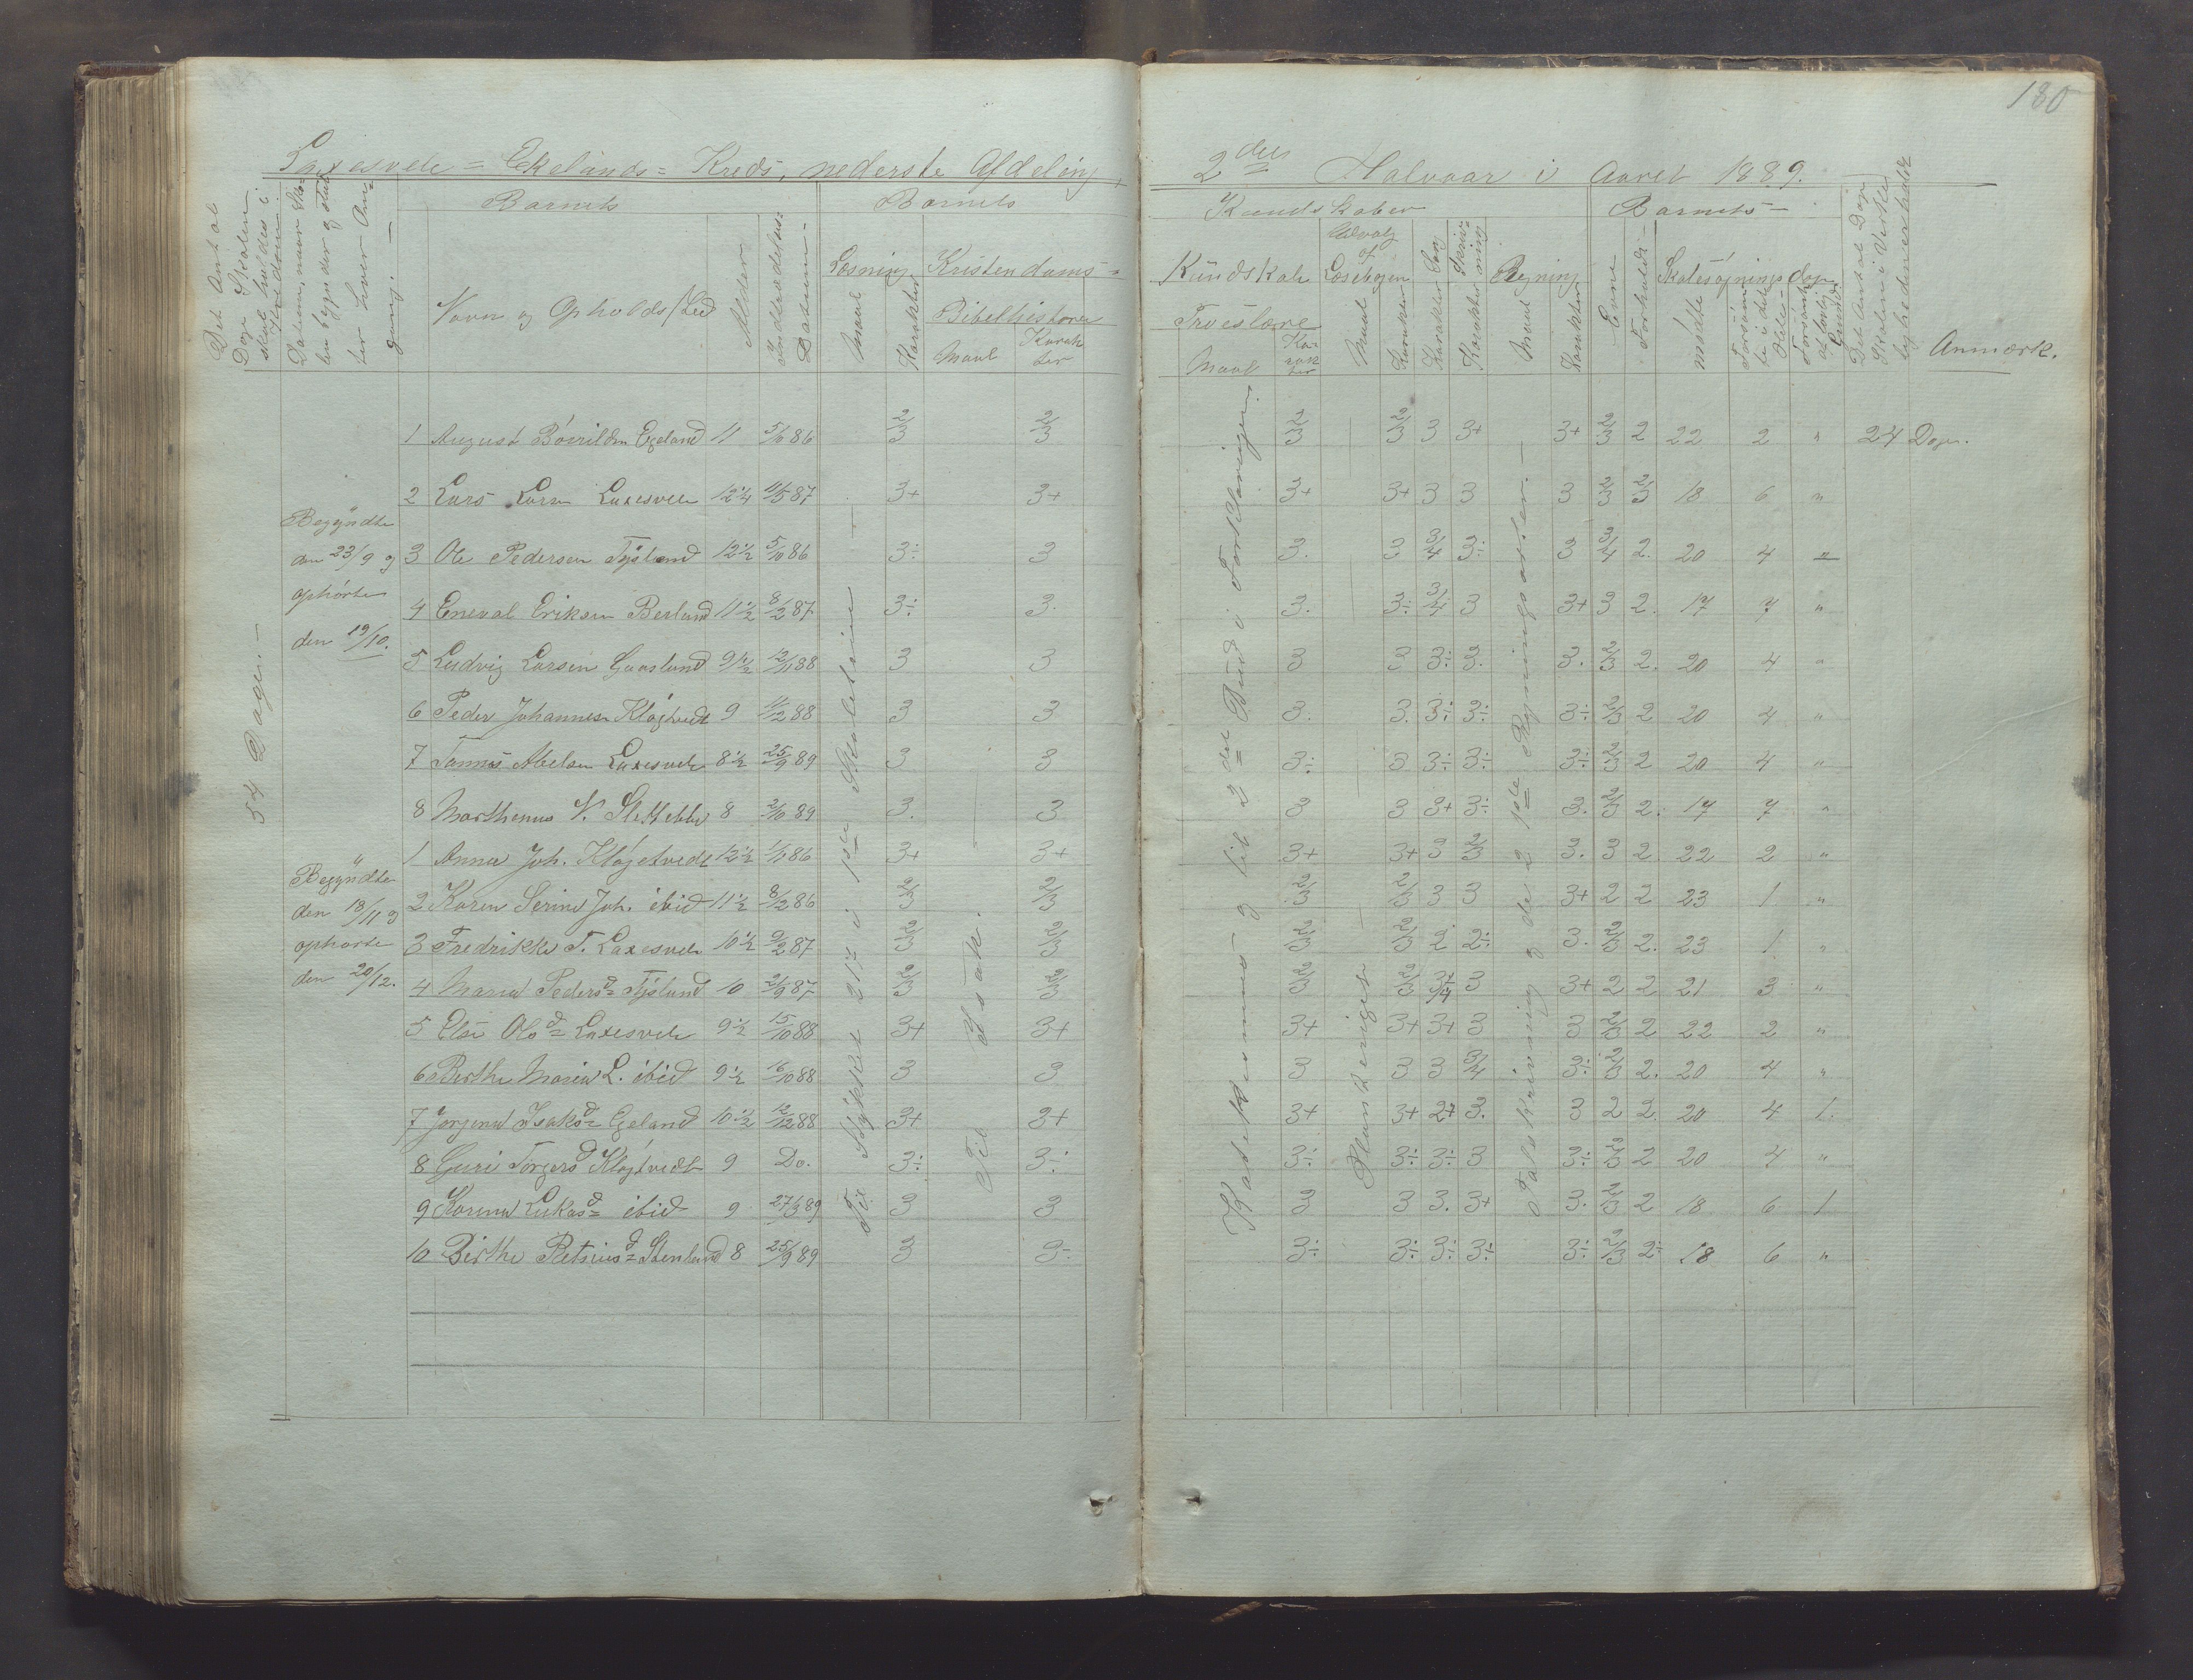 180
Laxesvele = Ekelands = Kreds, nederste Afdeling
2det Halvaar i Aaret 1889.
Det Antal Dage Skolen skal holdes i Kredsen.
Datum, naar Skolen begynder og slutter hver Omgang. —
Barnets
Barnets
Kundskaber
Barnets —
Navn og Opholds/sted
Alder
Indtrædelses-Datum.
Læsning
Maal
Karakter
Kristendoms-
Bibelhistorie
Maal
Karakter
Kundskab
Troeslære
Maal
Karakter
Udvalg af Læsebogen
Maal
Karakter
Sang
Karakter
Skrivning
Karakter
Regning
Maal
Karakter
Evne
Forholdt
Skolesøgnings Dage
mødte
Forsømte i det Hele
Forsømte af lovlig Grund
Det Antal Dage Skolen i Virkeligheden er holdt
Anmærk.
54 Dage. —
Begyndte
den 23/9 og
ophörte
den 19/10.
Begyndte
den 18/11 og
ophörte
den 20/12.
Til Stykket 217 i 1ste Skoletrin —
Til Isak. —
Katekismus og til 2det Bud i Forklaringen
Planteriget —
Talskrivning og de 2 1ste Regningsarter. —
1 August Egeland 11 5/6 86 2/3 2/3 2/3 2/3 3 3+ 3+ 2/3 2 22 2 " 24 Dage.
2 Lars Larsen Laxesvele 12 1/4 11/5 87 3+ 3+ 3+ 3+ 3 3 3 2/3 2/3 18 6 "
3 Ole Pedersen Tjösland 12 1/2 5/10 86 3÷ 3 3. 3 3/4 3÷ 3 3/4 2. 20 4 "
4 Eneval Eriksen Berland 11 1/2 8/2 87 3÷ 3. 3. 3÷ 3/4 3 3+ 3 2. 17 7 "
5 Ludvig Larsen Gaasland 9 1/2 12/11 88 3 3 3 3 3÷ 3. 3. 2/3 2. 20 4 "
6 Peder Johannesen Kløgtvedt 9 11/12 88 3 3 3. 3. 3÷ 3÷ 3÷ 2/3 2 20 4 "
7 Tønnes Abelsen Laxesvele 8 1/2 25/9 89 3 3 3÷ 3 3÷ 3÷ 3÷ 2/3 2 20 4 "
8 Marthinus N. Slettebø 8 2/10 89 3. 3 3 3 3+ 3÷ 3. 2/3 2. 17 7 "
1 Anna Joh. Kløgetvedt 12 1/2 1/11 86 3+ 3+ 3+ 3+ 3 2/3 3. 3 2. 22 2 "
2 Karen Serine Joh. ibid 11 1/2 8/12 86 2/3 2/3 2/3 2/3 3 3 3+ 2 2 23 1 "
3 Fredrikke T. Laxesvele 10 1/2 9/2 87 2/3 2/3 2/3 2/3 2 2÷ 3. 2/3 2. 23 1. "
4 Maria Pedersd= Tjösland 10 2/9 87 2/3 2/3 2/3 2/3 3+/4 3 3+ 2 2 21 3 "
5 Else Olsd= Laxesvele 9 1/2 15/10 88 3+ 3+ 3+ 3+ 3+ 3 3 2/3 2 22 2 "
6 Berthe Maria L. ibid 9 1/2 16/10 88 3 3 3 3 3 3/4 3÷ 2/3 2. 20 4 "
7 Jørgena Isaksd= Egeland 10 1/2 12/12 88 3+ 3+ 3+ 3+ 2+ 3. 3 2 2. 20 4 1.
8 Guri Torgersd Kløgtvedt 9 Do. 3÷ 3÷ 3÷ 3÷ 3÷ 3 3÷ 2/3 2 20 4 "
9 Korena Lukasd= ibid 9 27/3 89 3 3 3 3 3. 3+ 3. 2/3 2 18 6 1
10 Birthe Petriusd= Stenland 8 25/9 89 3 3÷ 3÷ 3÷ 3÷ 3÷ 3÷ 2/3 2÷ 18 6 "